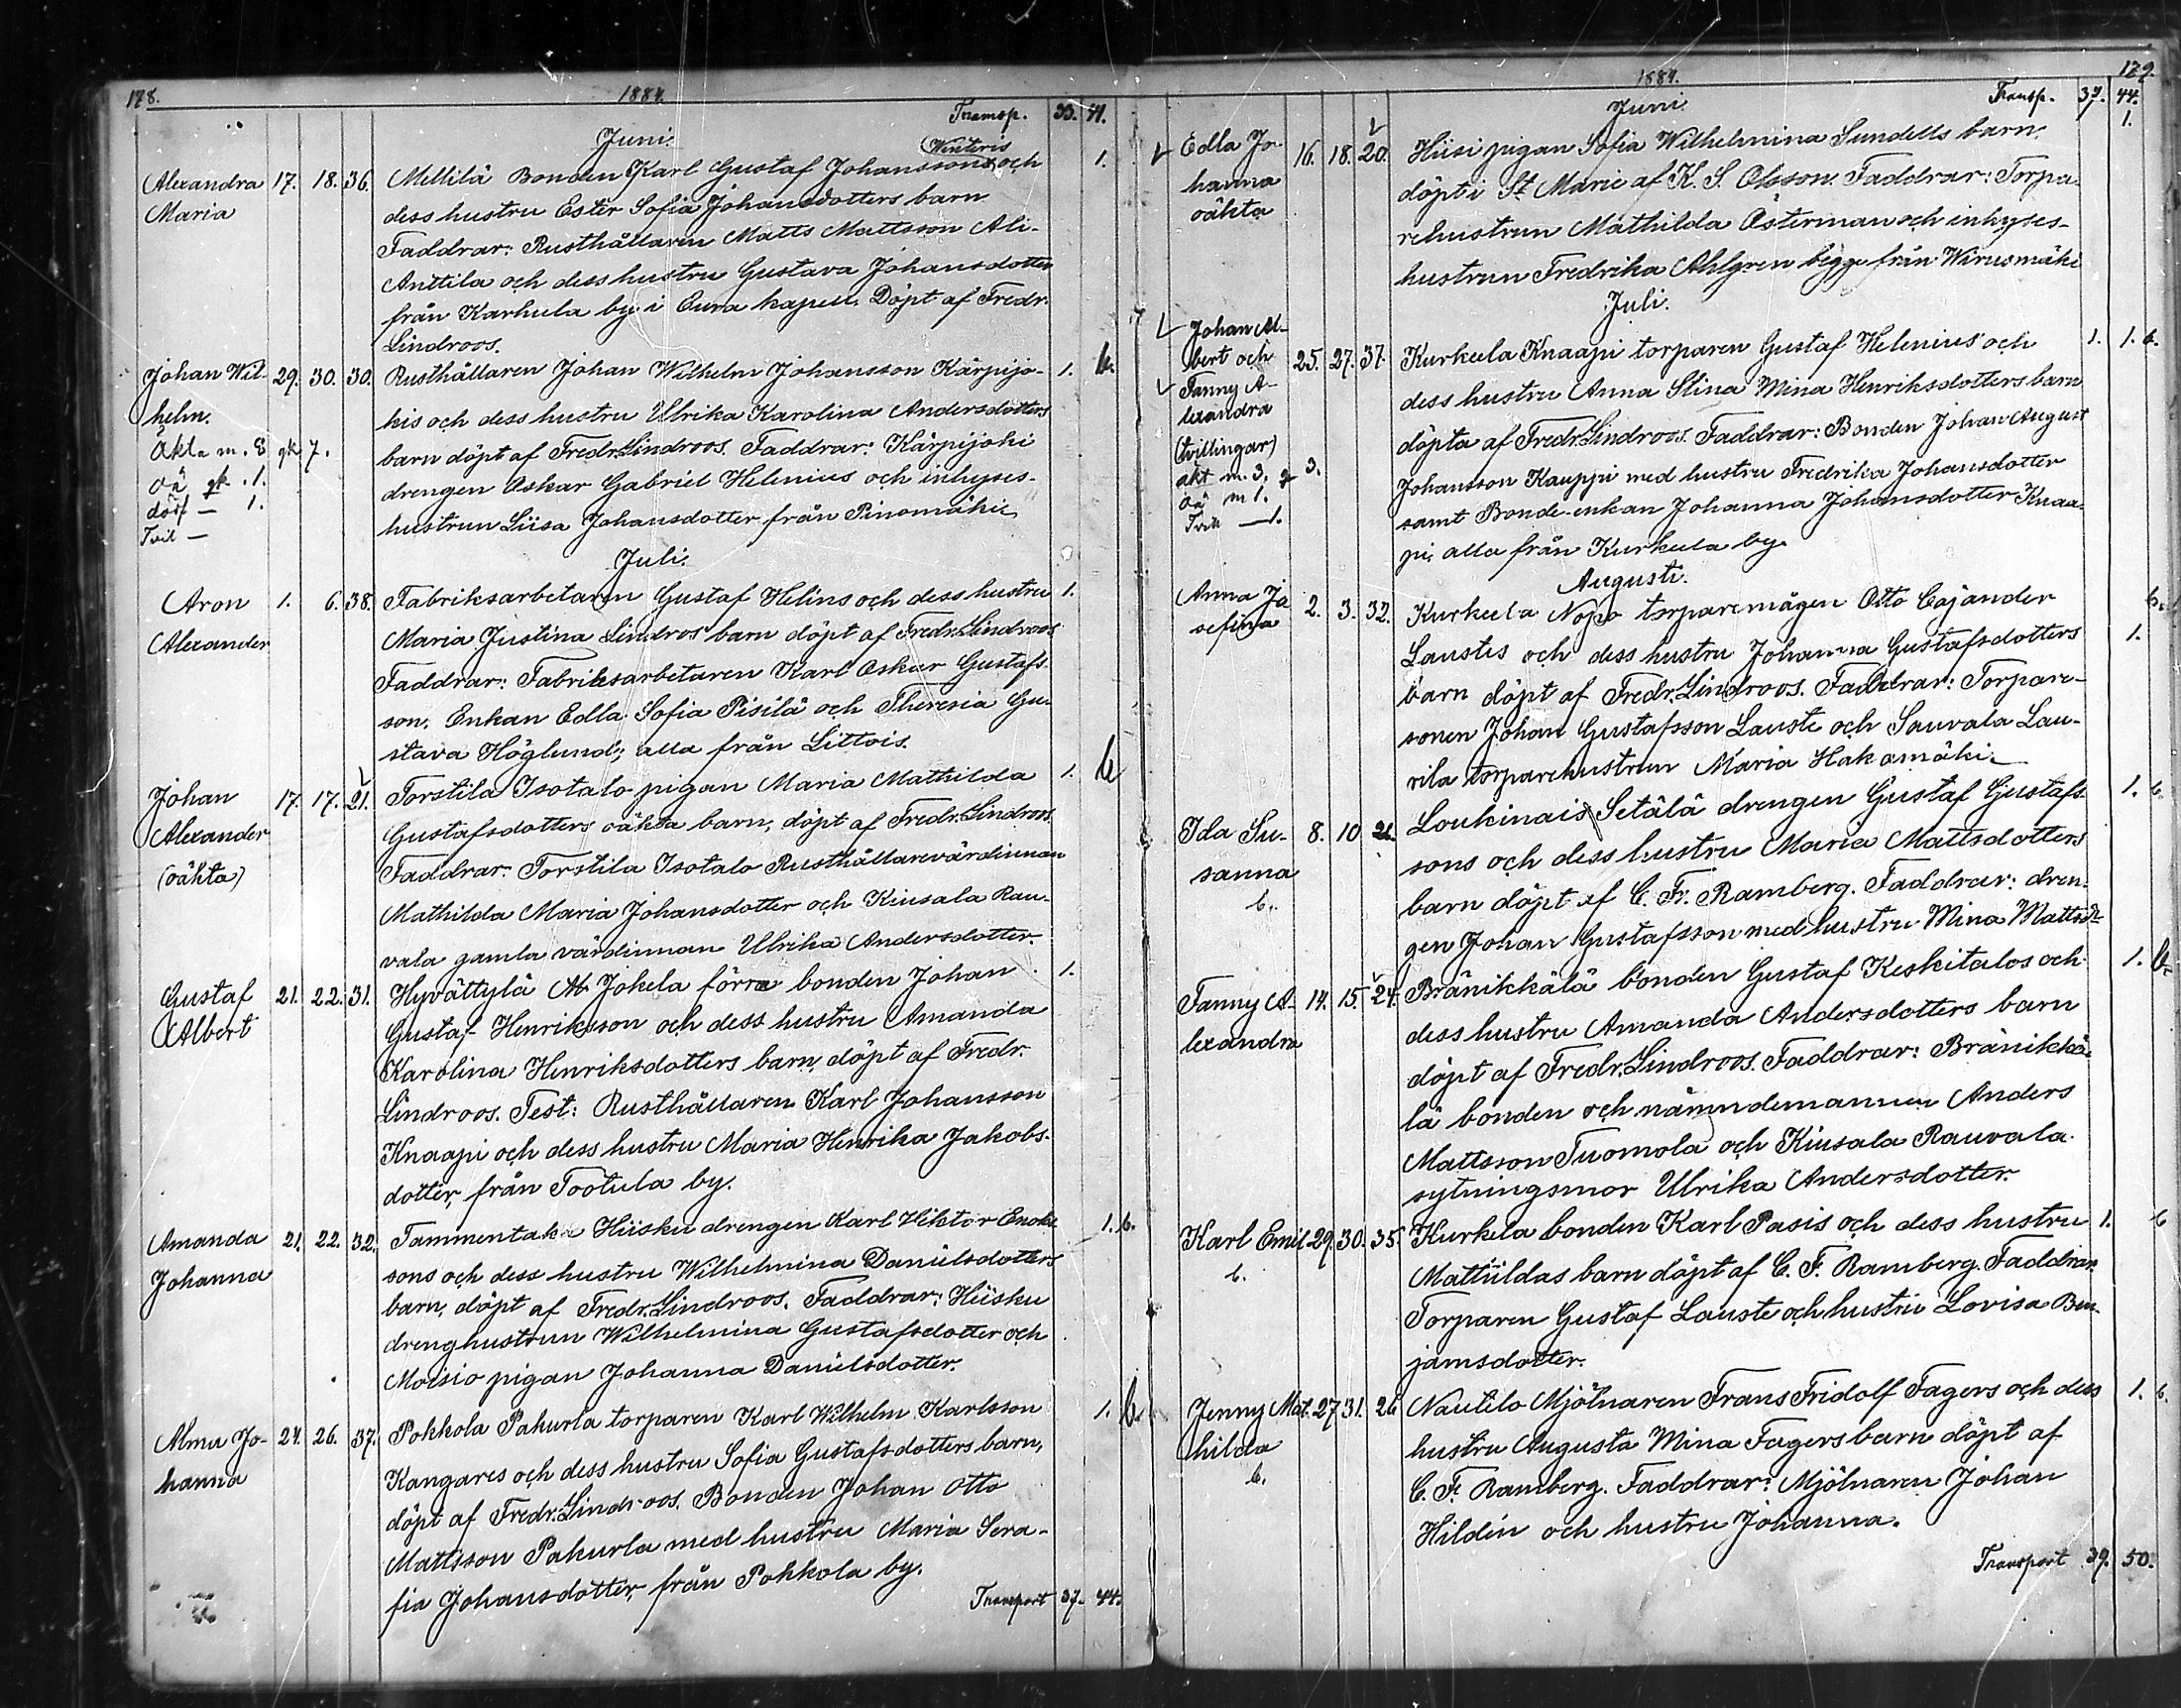 178.
1884.
Transp. 33. 41.
Juni.
Winteris
Alexandra 17. 18. 36. Mellilä Bonden Karl Gustaf Johanssons och 1.
Maria dess hustru Ester Sofia Johansdotters barn
Faddrar: Rusthållaren Matts Mattsson Ali-
Anttila och dess hustru Gustava Johansdotter
från Karhula by i Cura kapell. Döpt af Fredr.
Lindroos.
Johan Wil- 29. 30. 30. Rusthållaren Johan Wilhelm Johansson Kärpijo- 1. b.
helm. kis och dess hustru Ulrika Karolina Andersdotters
Äkta m. 8 qk 7. barn döpt af Fredr. Lindroos. Faddrar: Kärpijoki
oä qk. 1. drengen Oskar Gabriel Helenius och inhyses-
döpf — 1. hustrun Liisa Johansdotter från Pinomäki
Tvil —
Juli.
Aron 1. 6. 38. Fabriksarbetaren Gustaf Helins och dess hustru 1.
Alexander Maria Justina Lindros' barn döpt af Fredr. Lindroos
Faddrar: Fabriksarbetaren Karl Oskar Gustafs-
son. Enkan Edla Sofia Pisilä och Theresia Gu-
stava Höglund; alla från Littois.
Johan 17. 17. 21. Torstila Isotalo pigan Maria Mathilda 1. b
Alexander Gustafsdotters oäkta barn, döpt af Fredr. Lindroos.
(oäkta) Faddrar. Torstila Isotalo Rusthållarevärdinnan
Mathilda Maria Johansdotter och Kiusala Rau-
vala gamla värdinnan Ulrika Andersdotter.
Gustaf 21. 22. 31. Hyvättylä Ali Jokela förra bonden Johan 1.
Albert Gustaf Henriksson och dess hustru Amanda
Karolina Henriksdotters barn, döpt af Fredr.
Lindroos. Test: Rusthållaren Karl Johansson
Knaapi och dess hustru Maria Henrika Jakobs-
dotter, från Tootula by.
Amanda 21. 22. 32. Tammentaka Hiisku drengen Karl Viktor Enoks- 1. b.
Johanna sons och dess hustru Wilhelmina Danielsdotters
barn, döpt af Fredr. Lindroos. Faddrar: Hiisku
drenghustrun Wilhelmina Gustafsdotter och
Moisio pigan Johanna Danielsdotter.
Alma Jo- 24. 26. 37. Pokkola Pakurla torparen Karl Wilhelm Karlsson 1. b.
hanna Kangares och dess hustru Sofia Gustafsdotters barn,
döpt af Fredr. Lindroos. Bonden Johan Otto
Mattsson Pakurla med hustru Maria Sera-
fia Johansdotter, från Pokkola by.
Transport 37. 44.
179.
1884.
Transp. 37. 44.
Juni.
Edla Jo- 16. 18. 20. Hiisi pigan Sofia Wilhelmina Sundells barn. 1.
hanna döpt i St Marie af K. S. Olsson. Faddrar: Torpa-
oäkta rehustrun Mathilda Österman och inhyses-
hustrun Fredrika Ahlgren bägge från Wirusmäki
Juli.
Johan Al-
bert och 25. 27. 37. Kurkela Knaapi torparen Gustaf Helenius' och 1. 1. b.
Fanny A- dess hustru Anna Stina Mina Henriksdotters barn
lexandra döpta af Fredr. Lindroos. Faddrar: Bonden Johan August
(tvillingar) Johansson Kauppi med hustru Fredrika Johansdotter
äkt m. 3. q 3. samt Bonde-enkan Johanna Johansdotter Knaa-
oä m 1. pi, alla från Kurkela by.
Tvil — 1.
Augusti.
Anna Jo 2. 3. 32. Kurkela Nopo torparemågen Otto Cajander b.
sefina Laustes och dess hustru Johanna Gustafsdotters 1.
barn döpt af Fredr. Lindroos. Faddrar: Torpare-
sonen Johan Gustafsson Lauste och Sauvala Lau-
rila torparehustrun Maria Hakamäki.
Ida Su- 8. 10 Loukinais Setälä drengen Gustaf Gustafs- 1. b.
sanna sons och dess hustru Maria Mattsdotters
b. barn döpt af C. Fr. Ramberg. Faddrar: dren-
gen Johan Gustafsson med hustru Mina Mattsdr
Fanny A- 14. 15. 24. Bränikkälä bonden Gustaf Keskitalos och 1. b.
lexandra dess hustru Amanda Andersdotters barn
döpt af Fredr. Lindroos. Faddrar: Bränikkä-
lä bonden och nämndemannen Anders
Mattsson Tuomola och Kiusala Rauvala
sytningsmor Ulrika Andersdotter.
Karl Emil 29. 30. 35. Kurkela bonden Karl Pasis och dess hustru 1. b
b. Mathildas barn döpt af C. F. Ramberg. Faddrar:
Torparen Gustaf Lauste och hustru Lovisa Ben-
jamsdotter.
Jenny Mat- 27 31. 26 Nautilo Mjölnaren Frans Fridolf Fagers och dess 1. b.
hilda hustru Augusta Mina Fagers barn döpt af
b. C. F. Ramberg. Faddrar: Mjölnaren Johan
Hildén och hustru Johanna.
Transport 39. 50.